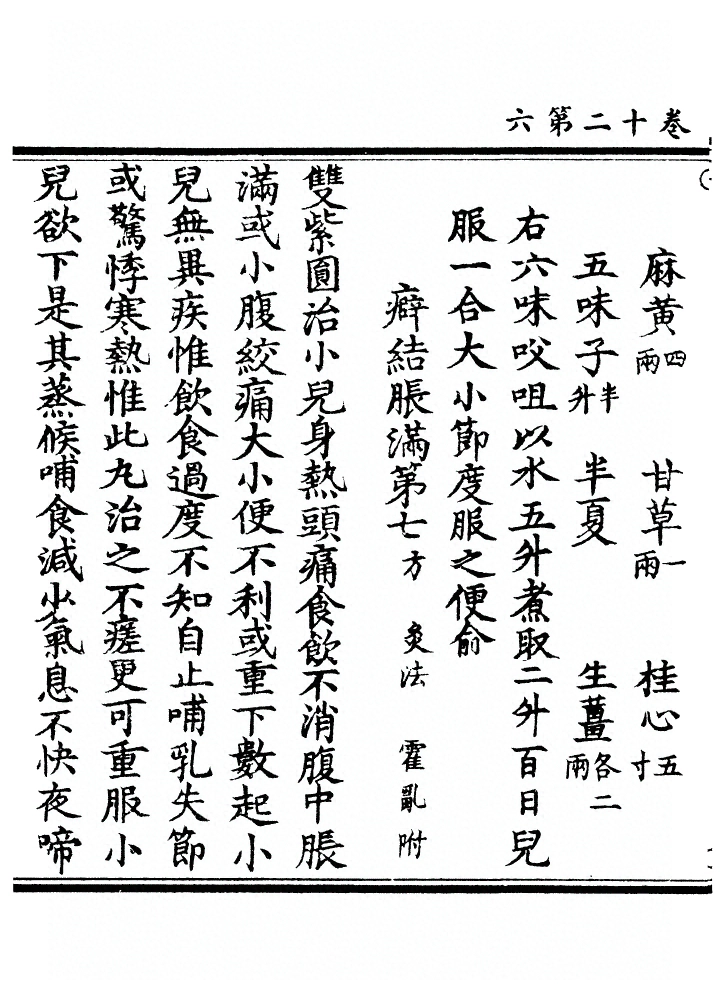 卷十二第六
麻黃四兩 甘草一兩 桂心五寸
五味子半升 半夏 生薑各二兩
右六味㕮咀以水五升煮取二升百日兒
服一合大小節度服之便俞
癖結脹滿第七方 灸法 霍亂附
雙紫圓治小兒身熱頭痛食飲不消腹中脹
滿或小腹絞痛大小便不利或重下數起小
兒無異疾惟飲食過度不知自止哺乳失節
或驚悸寒熱惟此丸治之不瘥更可重服小
兒欲下是其蒸候哺食減少氣息不快夜啼